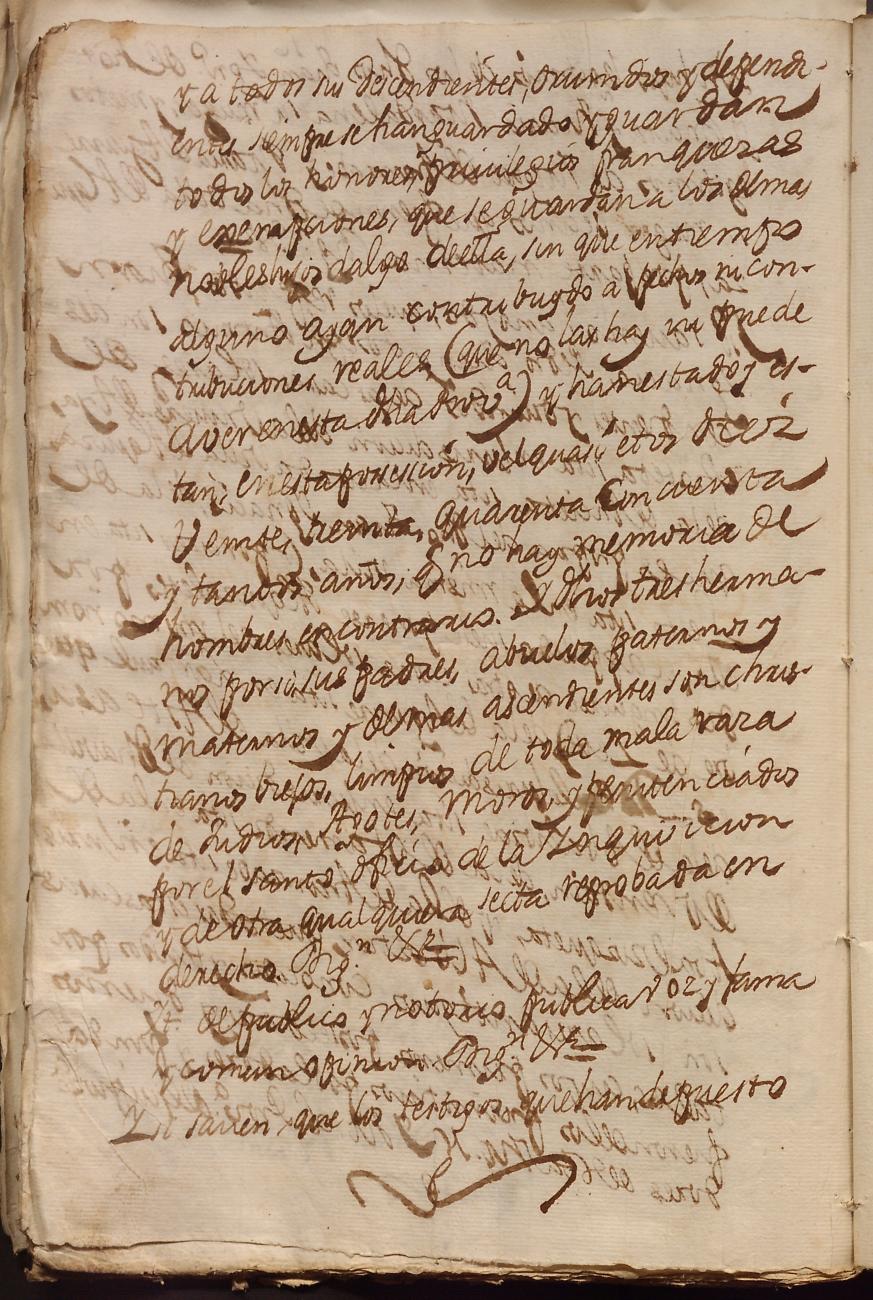 y a todos sus descendientes, oriundos y dependi-
entes siempre se han guardado y guardan
todos los honores, privilegios franquezas
y exempciones, que se guardan a los demas
nobles hijos dalgo de ella, sin que en tiempo
alguno ayan contribuydo a pechos ni con-
tribuciones reales (que no las hay ni puede
aver en esta dha prov.ª) y han estado y es-
tan, en esta posession, vel quasi, etos diez
veinte, treinta, quarenta cinquenta
y tantos años, q no hay memoria de
hombres en contrario. Y dhos tres herma-
nos por si, sus padres, abuelos paternos y
maternos y demas ascendientes son chris-
tianos biejos, limpios de toda mala raza
de Judios, Agotes, Moros, y penitenciados
por el santo oficio de la Inquisicion
y de otra qualquiera secta reprobada en
derecho. Dig.n &.ª
Yt. de publico y notorio publica voz y fama
y comun opinion. Dig.n &.ª
Si saven, que los testigos, que han depuesto